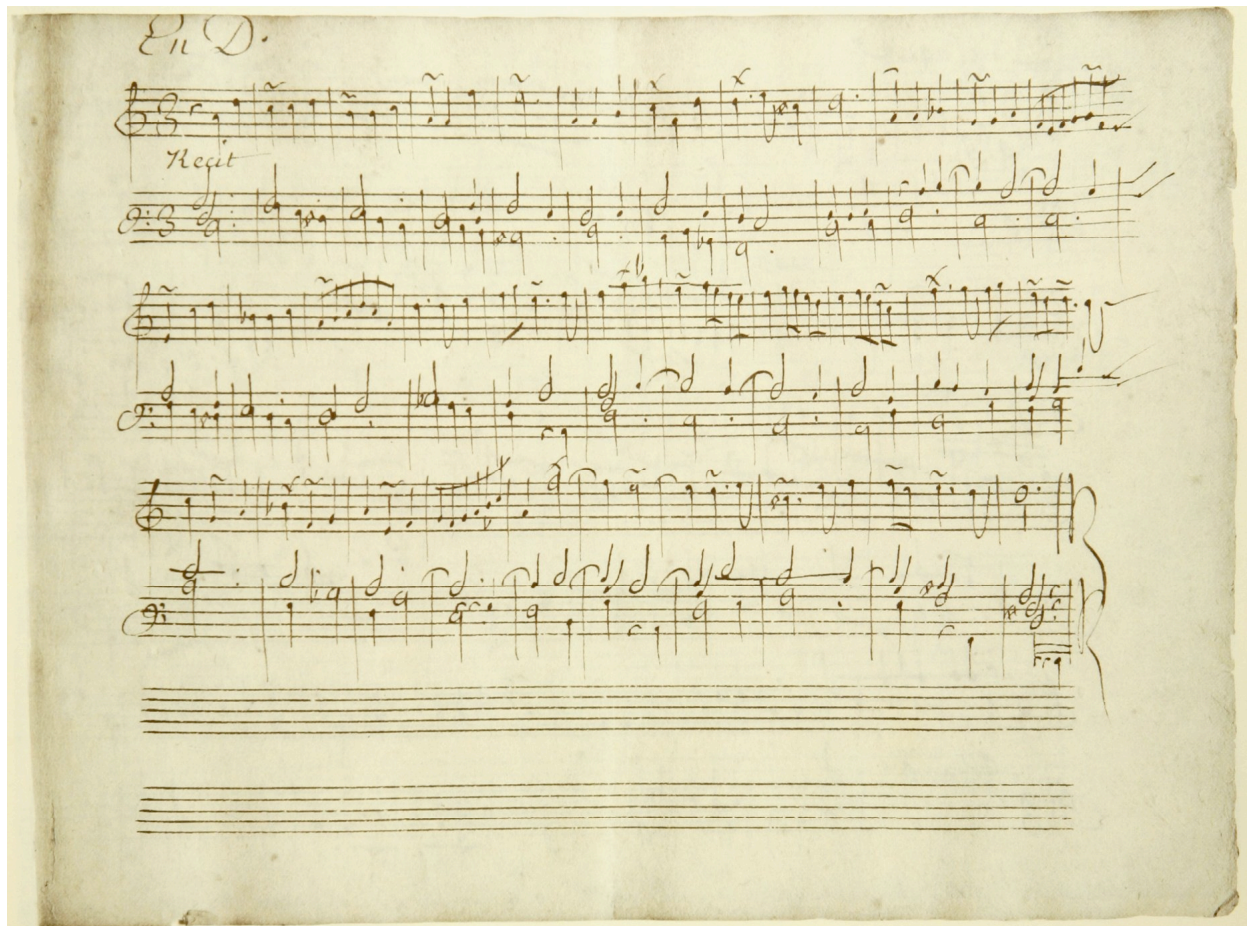 En D.
Recit